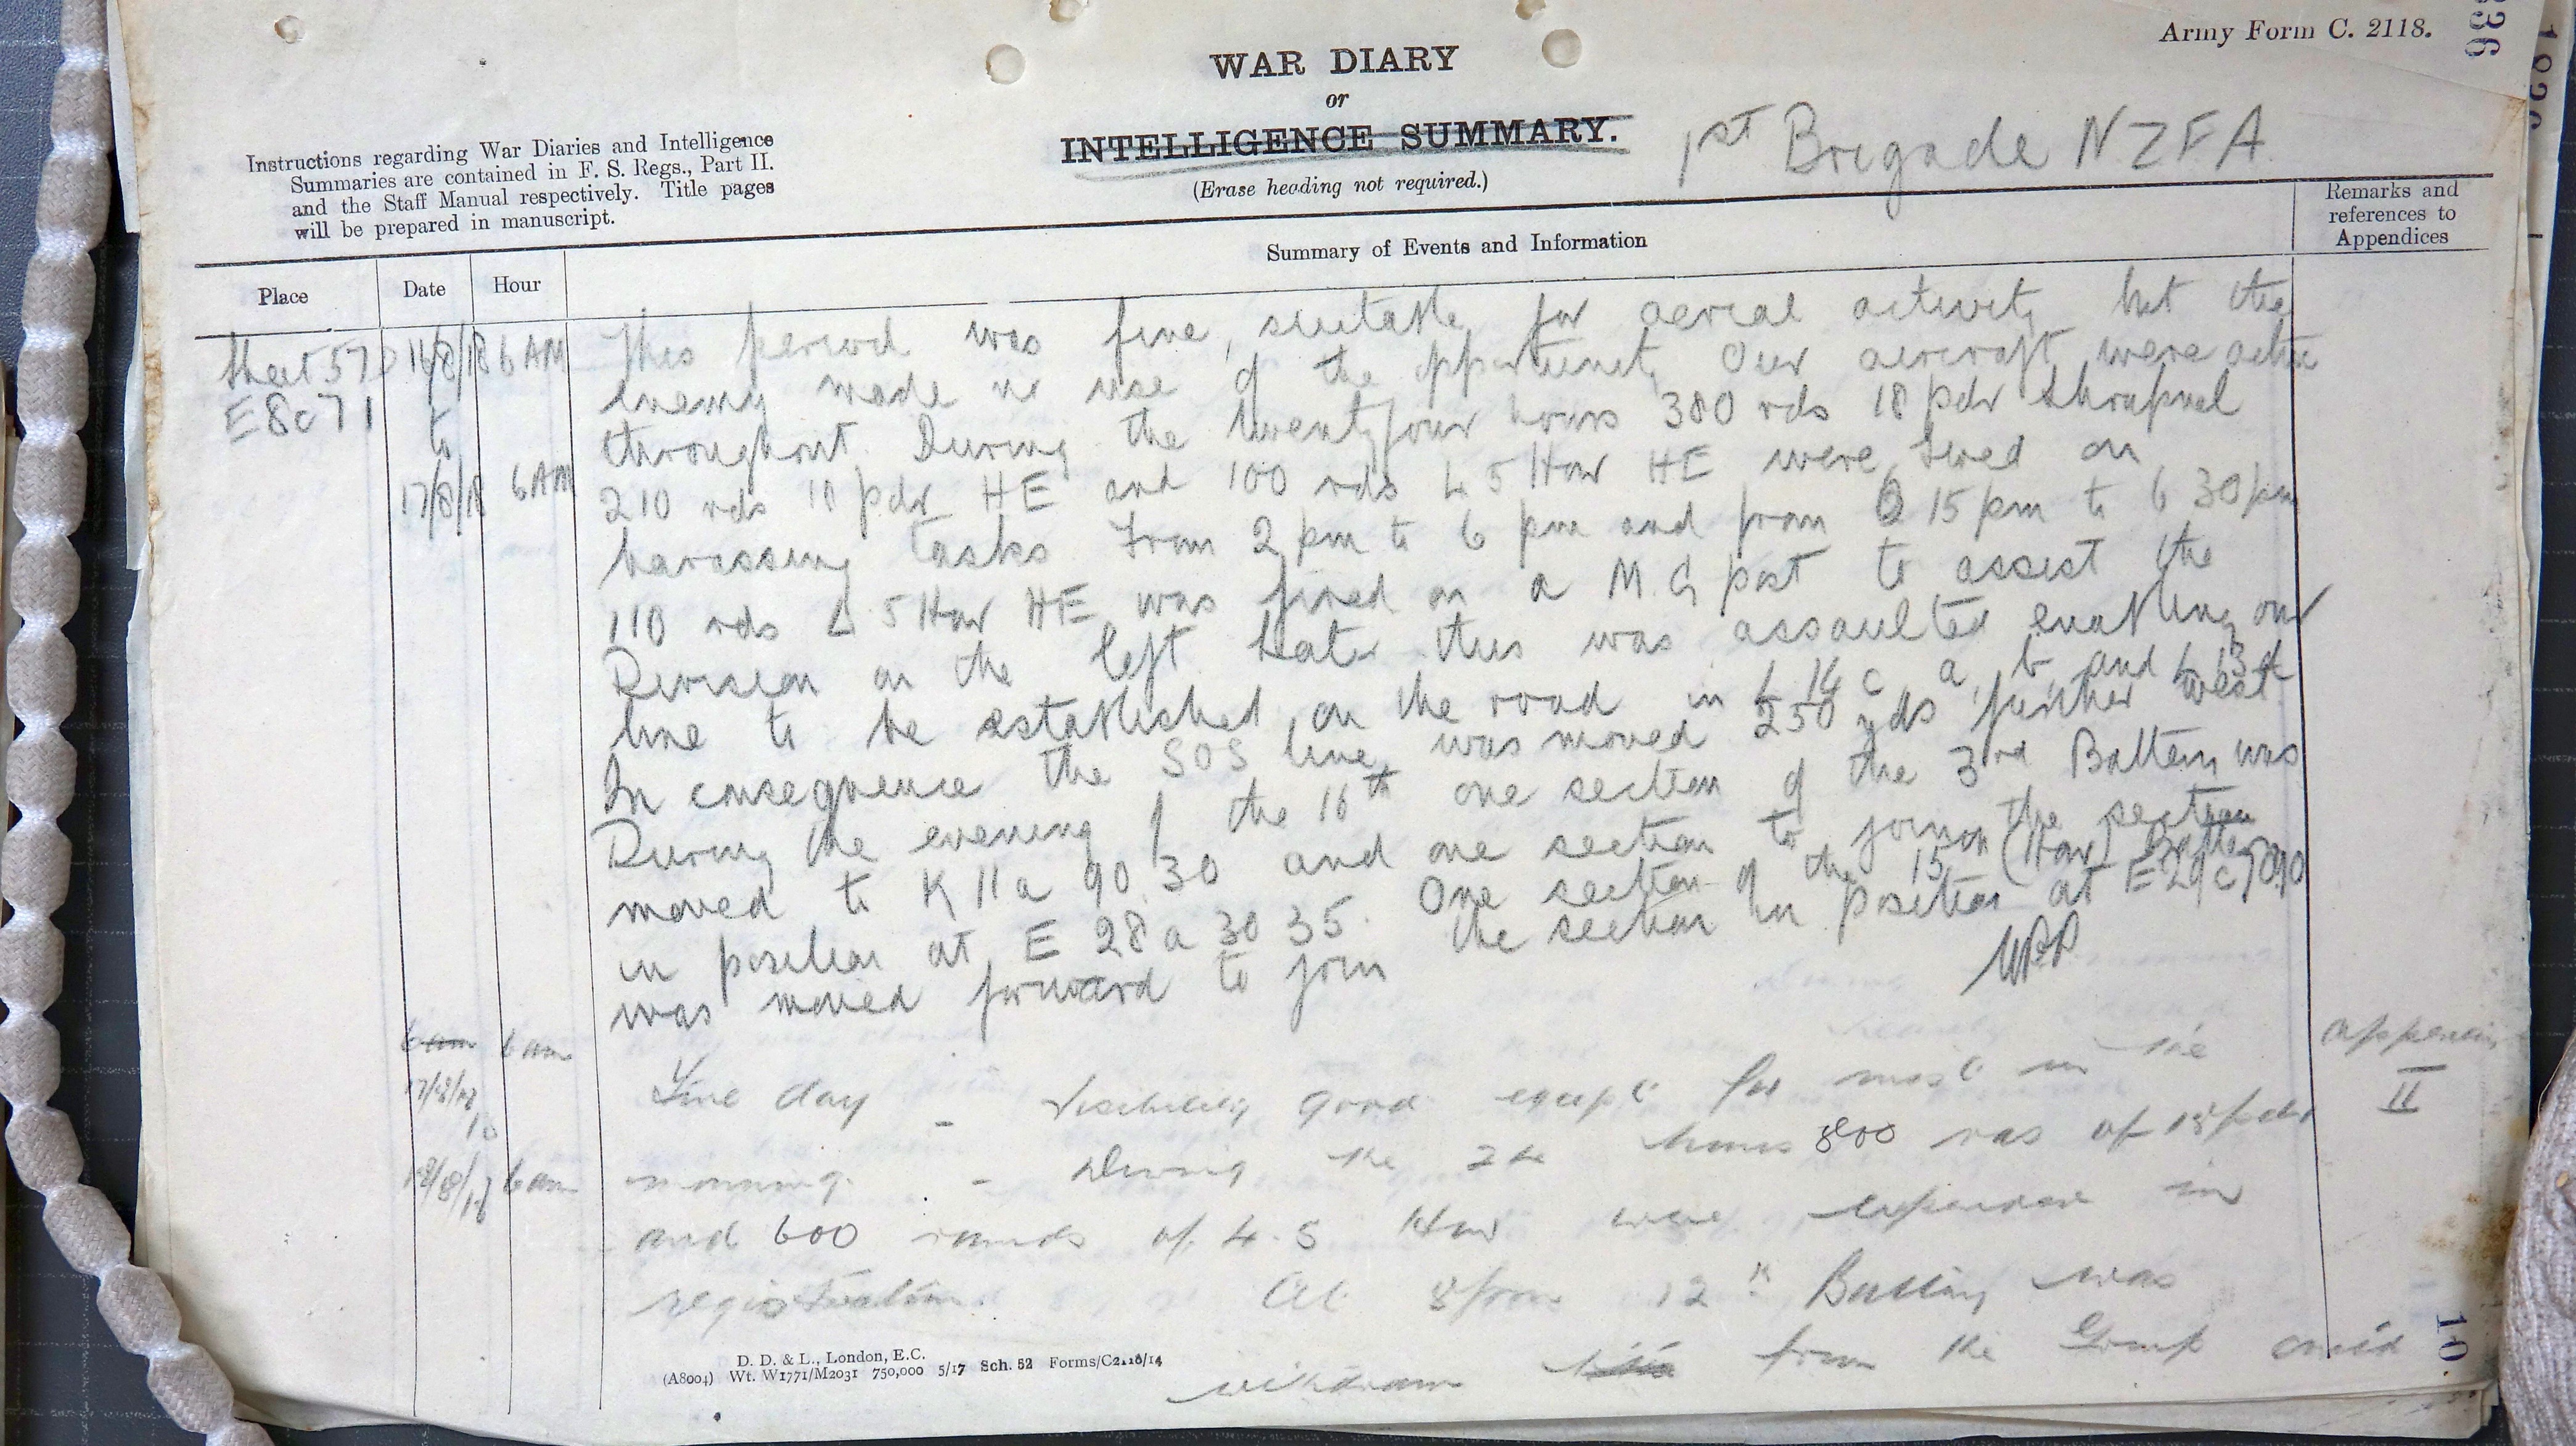 Army Form C. 2118.
WAR DIARY
or
INTELLIGENCE SUMMARY.
(Erase heading not required.)
1st Brigade NZFA
Instructions regarding War Diaries and Intelligence
Summaries are contained in F. S. Regs., Part II.
and the Staff Manual respectively. Title pages
will be prepared in manuscript.
Remarks and
references to
Appendices
Summary of Events and Information
Place
Date
Hour
Sheet 57D 16/8/18 6 AM
E8c71
to
17/8/18 6AM
This period was fine, suitable for aerial activity but the
enemy made no use of the opportunity Our aircraft were active
throughout. During the twentyfour hours 380 rds 18 pdr Shrapnel
210 rds 18 pdr HE and 100 rds 4 5 How HE were fired on
harassing tasks From 2 pm to 6 pm and from 6 15 pm to 6 30 pm
110 rds 4.5 How HE was fired on a M.G post to assist the
Division on the left Later this was assaulted enabling our
line to be established on the road in L 14 c a, b, and L 13 d
In consequence the SOS line was moved 250 yds further west
During the evening of the 16th one section of the 3rd Battery was
moved to K 11a 90 30 and one section to join the section
in position at E 28 a 30 35. One section of the 15 (How) Battery
was moved forward to join the section in position at E29c7090
6 am 6 am
17/8/18
to
18/8/18 6 am
Fine day - Visibility good except for mist in the
morning. - During the 24 hours 800 rds of 18 pdr
and 600 rounds of 4.5 How were expended in
registration. At 8 pm 12th Battery was
withdrawn from the Group and
Appendix
II
D. D. & L., London, E.C.
(A8004) Wt. W1771/M2031 750,000 5/17 Sch. 52 Forms/C2118/14
10